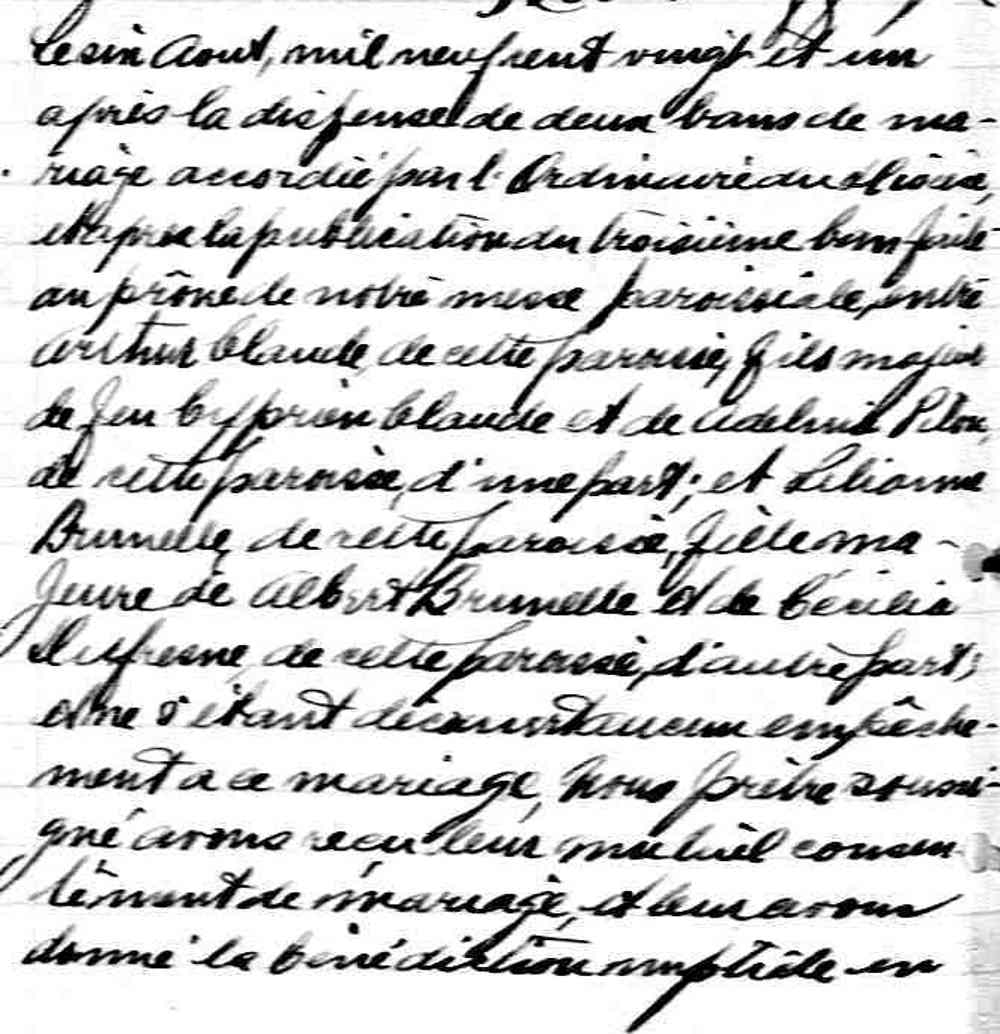 Le six Aout, mil neuf cent vingt et un
après la dispense de deux bans de ma-
riage accordée par l'Ordinaire du diocèse,
et après la publication du troisième ban faite
au prône de notre messe paroissiale, entre
Arthur Claude, de cette paroisse, fils majeur
de feu Cyprien Claude et de Pilon,
de cette paroisse, d'une part; et Lilianne
Brunelle, de cette paroisse, fille ma-
jeure de Albert Brunelle et de Cécilia
Dufresne, de cette paroisse, d'autre part;
et ne s'étant découvert aucun empêche-
ment a ce mariage, Nous prêtre soussi-
gné avons reçu leur mutuel consen
tement de mariage, et leur avons
donné la bénédiction nuptiale en